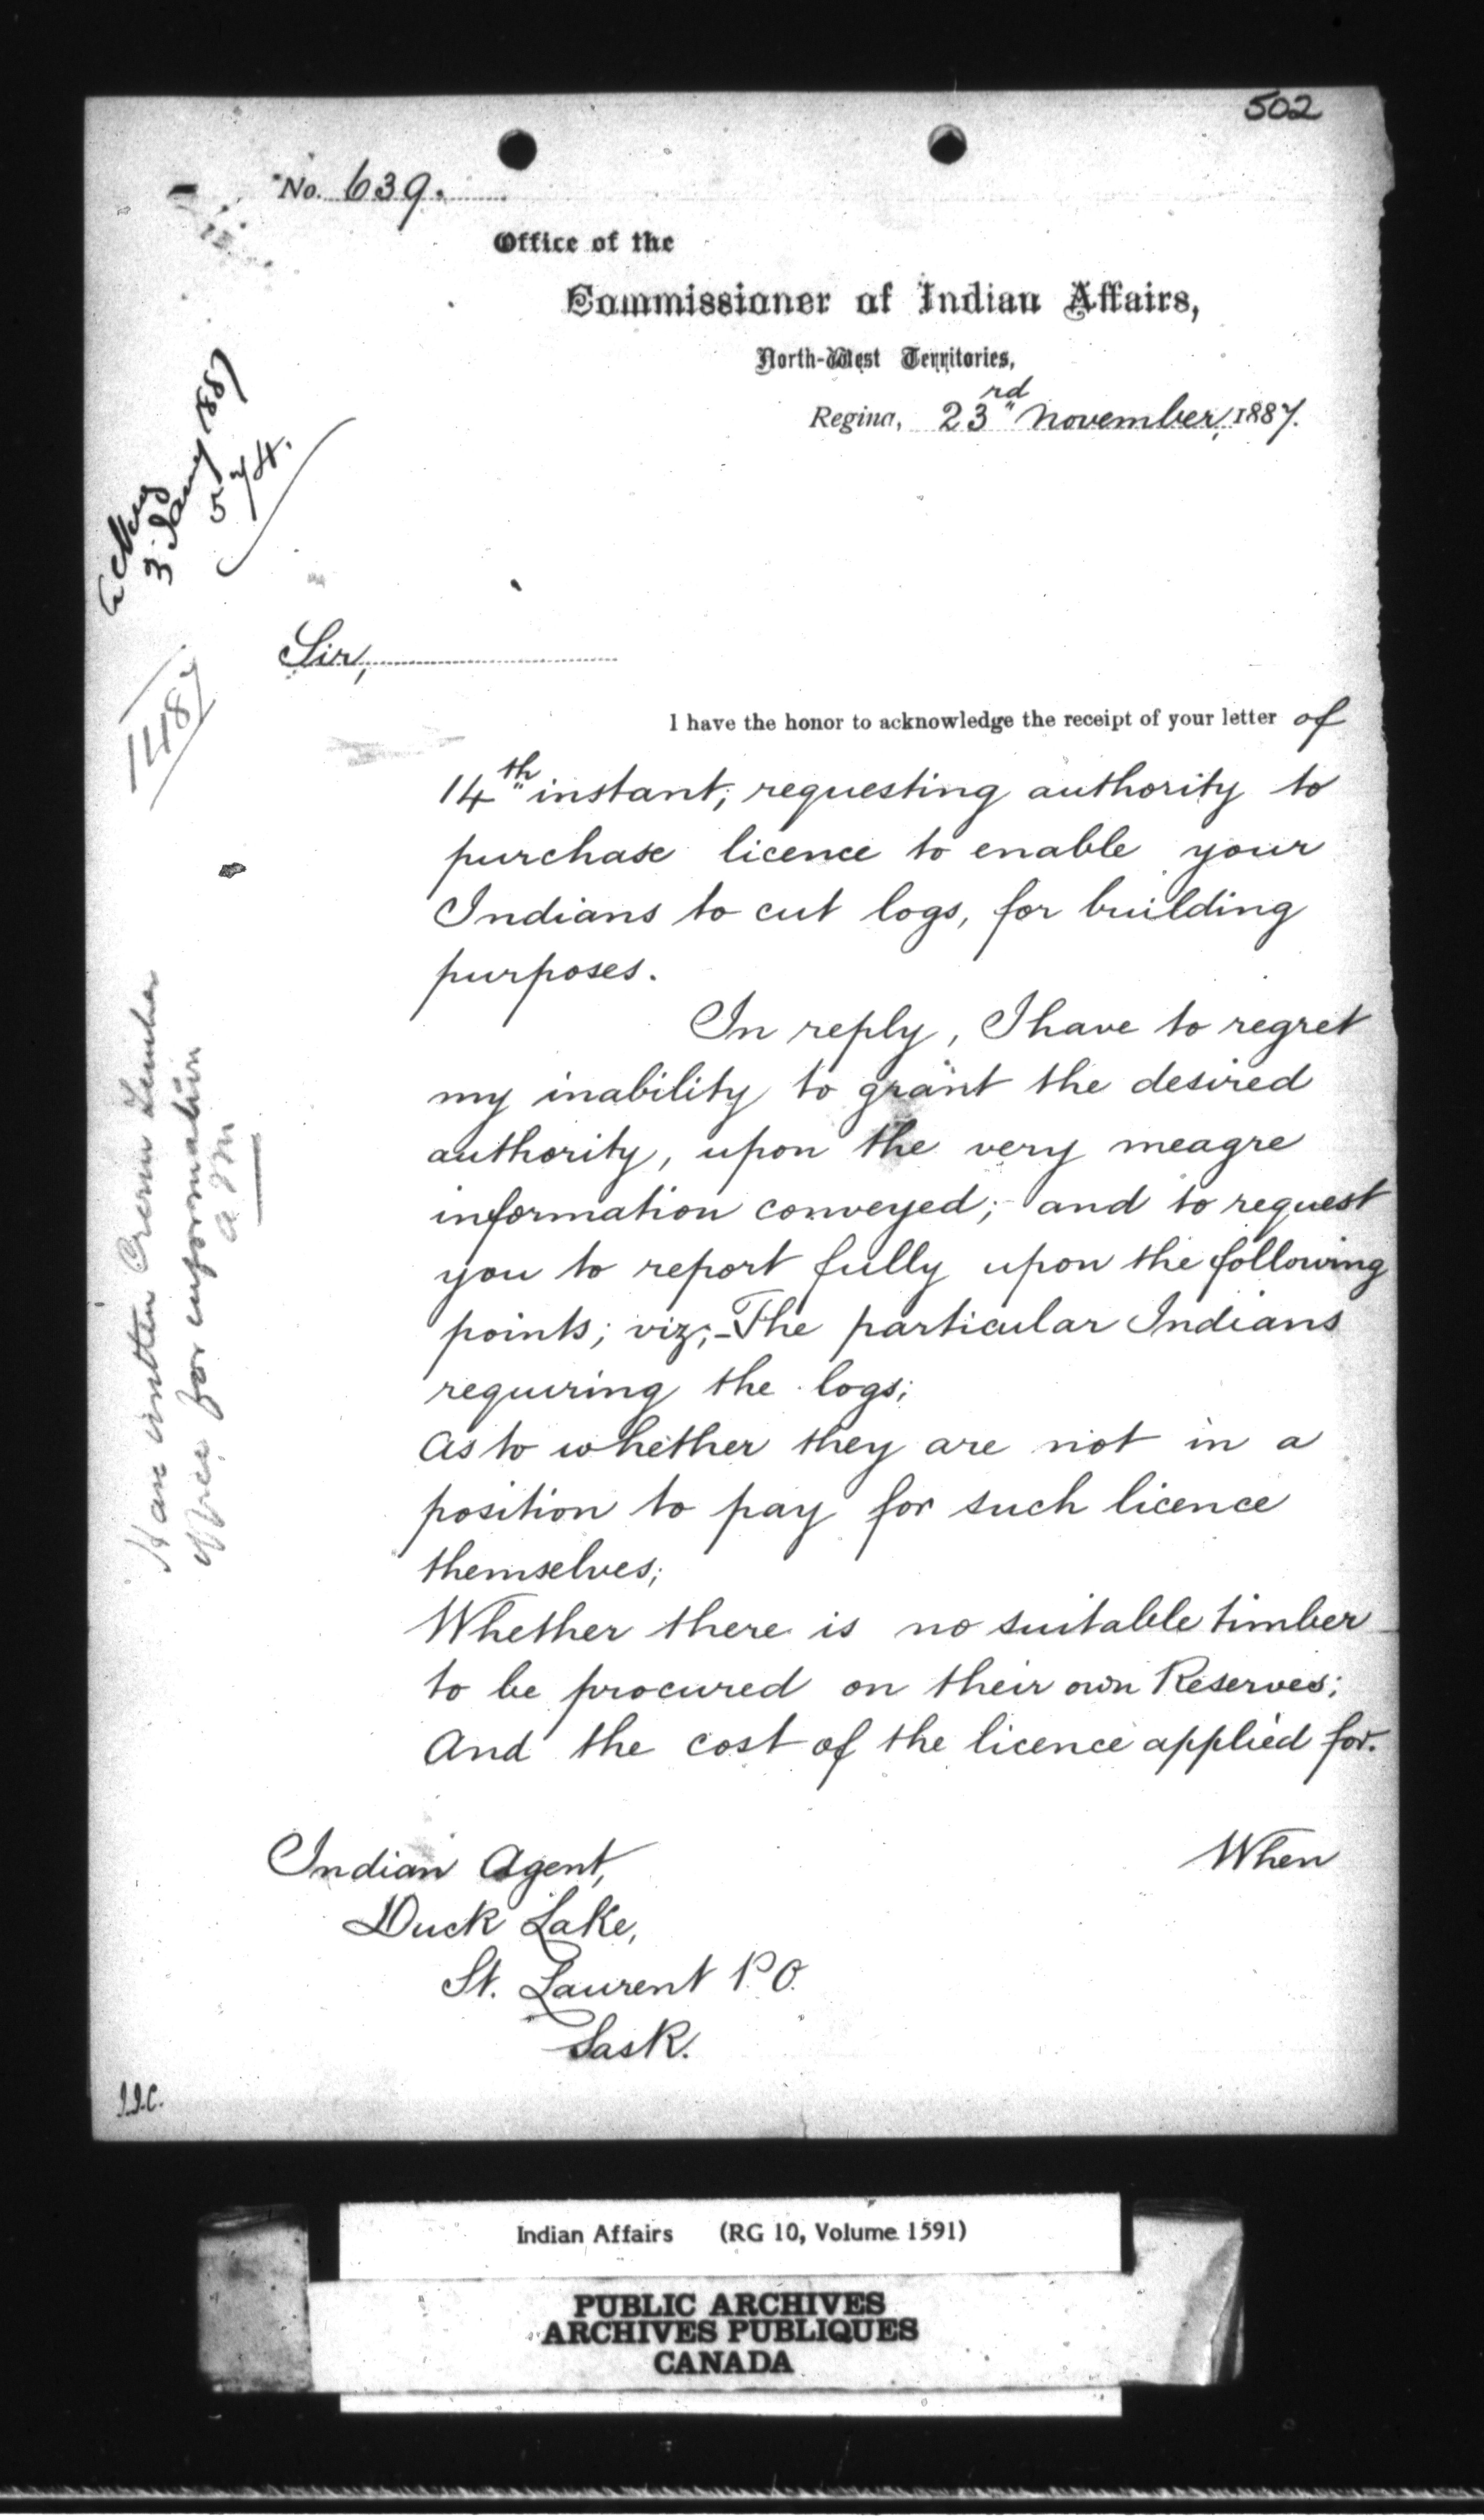 502
No. 639.
Office of the
Commissioner of Indian Affairs,
North-West Territories,
Regina, 23rd November, 1887.
3 Jany 1887
574.
1487
Sir,
I have the honor to acknowledge the receipt of your letter of
14th instant, requesting authority to
purchase licence to enable your
Indians to cut logs, for building
purposes.
In reply, I have to regret
my inability to grant the desired
authority, upon the very meagre
information conveyed; and to request
you to report fully upon the following
points; viz;- The particular Indians
requiring the logs;
As to whether they are not in a
position to pay for such licence
themselves;
Whether there is no suitable timber
to be procured on their own Reserves;
And the cost of the licence applied for.
When
Indian Agent,
Duck Lake,
St. Laurent P.O.
Sask.
Have written Crown Timber
office for information
J.J.C.
Indian Affairs (RG 10, Volume 1591)
PUBLIC ARCHIVES
ARCHIVES PUBLIQUES
CANADA